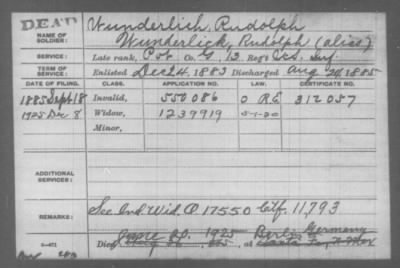 DEAD
Wunderlich, Rudolph
NAME OF SOLDIER: Wunderlick, Rudolph (alias)
SERVICE: Late rank, Pvt Co. G, 13 Reg't U.S. Inf.
TERM OF SERVICE: Enlisted Dec 24, 1883 Discharged Aug 20, 1885
DATE OF FILING. CLASS. APPLICATION NO. LAW. CERTIFICATE NO.
1885 Sept 18 Invalid, 550086 O R E 312057
1925 Dec 8 Widow, 1239919 5-1-20
Minor,
ADDITIONAL SERVICES:
REMARKS: See Ind Wid. O 17550 Ctf. 11,793
Died June 20, 1925 Berlin Germany